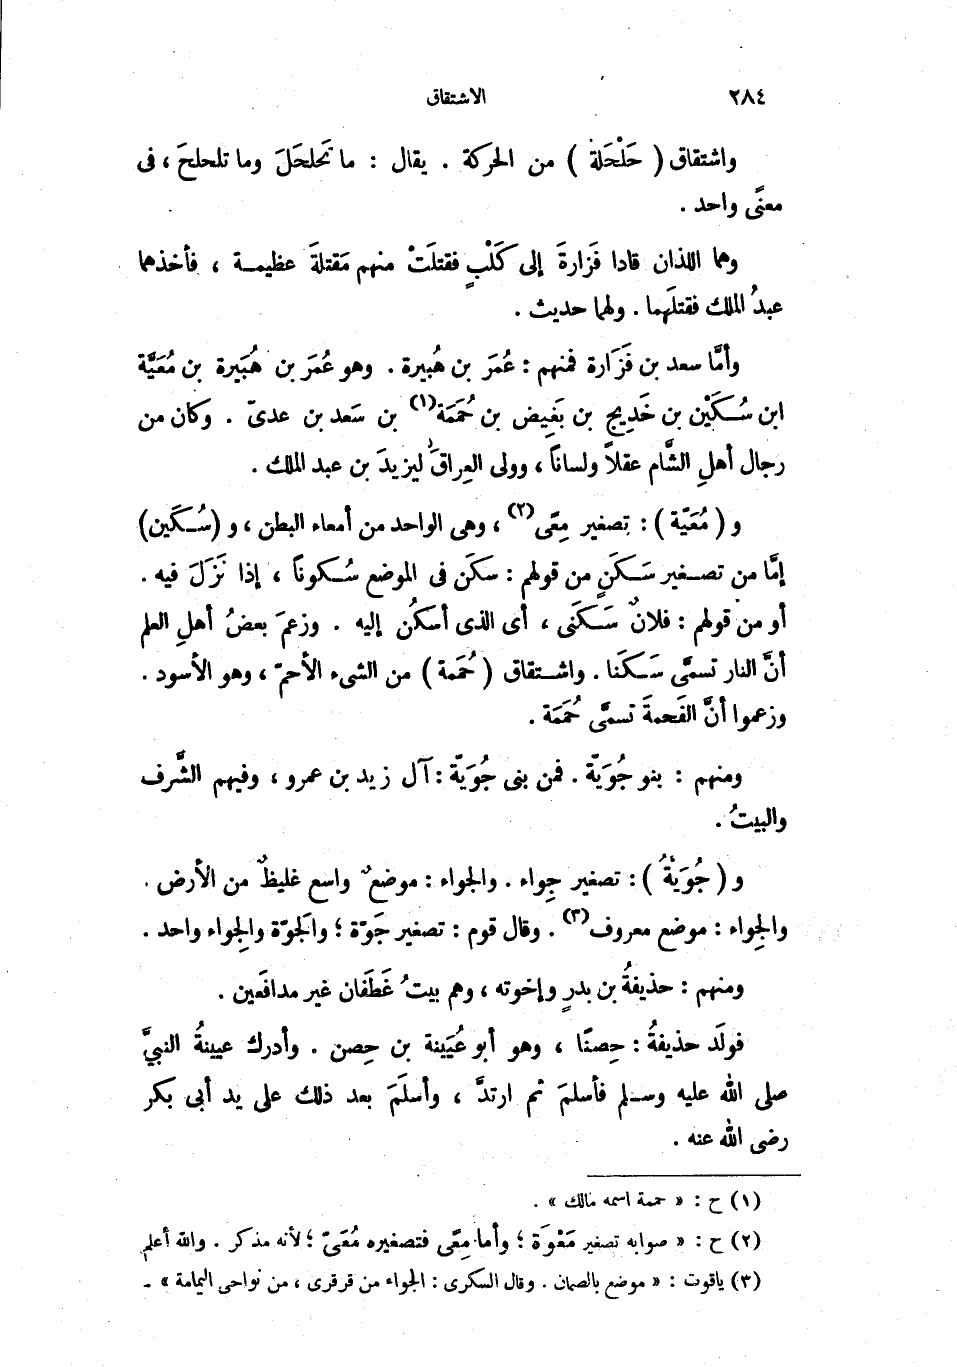 ٢٨٤
الاشتقاق
واشتقاق ( حَلْحَلة ) من الحركة . يقال : ما تَحلحَلَ وما تلحلحَ ، فى
معنًى واحد .
وهما اللذان قادا فَزارةَ إلى كَلْبٍ فقتلَتْ منهم مَقتلةَ عظيمـة ، فأخذهما
عبدُ الملك فقتلَهما . ولهما حديث .
وأمَّا سعد بن فَزَارة فمنهم : عُمَر بن هُبيرة . وهو عُمَر بن هُبَيرة بن مُعَيَّة
ابن سُـكَيْن بن خَدِيج بن بَغِيض بن حُمَمَة(١) بن سَعد بن عدىّ . وكان من
رجال أهلِ الشَّام عقلاً ولساناً ، وولى العِراقَ ليزيدَ بن عبد الملك .
و ( مُعَيّة ) : تصغير مِعًى(٢) ، وهى الواحد من أمعاء البطن ، و (سُـكَين)
إمَّا من تصـغير سَـكَنٍ من قولهم : سكَن فى الموضع سُـكوناً ، إذا نَزَلَ فيه .
أو من قولهم : فلانٌ سَـكَنى ، أى الذى أسكُن إليه . وزعمَ بعضُ أهلِ العلم
أنَّ النار تسمَّى سَـكَنا . واشـتقاق ( حُمَمة ) من الشىء الأحمّ ، وهو الأسود .
وزعموا أنَّ الفَحمةَ تسمَّى حُمَمَة .
ومنهم : بنو جُوَيَّة . فمن بنى جُوَيَّة : آل زيد بن عمرو ، وفيهم الشَّرف
والبيتُ .
و ( جُوَيةُ ) : تصغير جِواء . والجواء : موضعٌ واسع غليظٌ من الأرض .
والجِواء : موضع معروف(٣) . وقال قوم : تصغير جَوّة ؛ والجَوّة والجِواء واحد .
ومنهم : حذيفةُ بن بدرٍ وإخوته ، وهم بيتُ غَطَفان غير مدافَعين .
فولَد حذيفةُ : حِصنًا ، وهو أبو عُيَينة بن حِصن . وأدرك عيينةُ النبيَّ
صلى الله عليه وسـلم فأسلمَ ثم ارتدَّ ، وأسلَمَ بعد ذلك على يد أبى بكر
رضى الله عنه .
(١) ح : « حممة اسمه مالك » .
(٢) ح : « صوابه تصغير مَعْوَة ؛ وأما مِعًى فتصغيره مُعَىّ ؛ لأنه مذكر . والله أعلم
(٣) ياقوت : « موضع بالصمان . وقال السكرى : الجواء من قرقرى ، من نواحى اليمامة » ـ